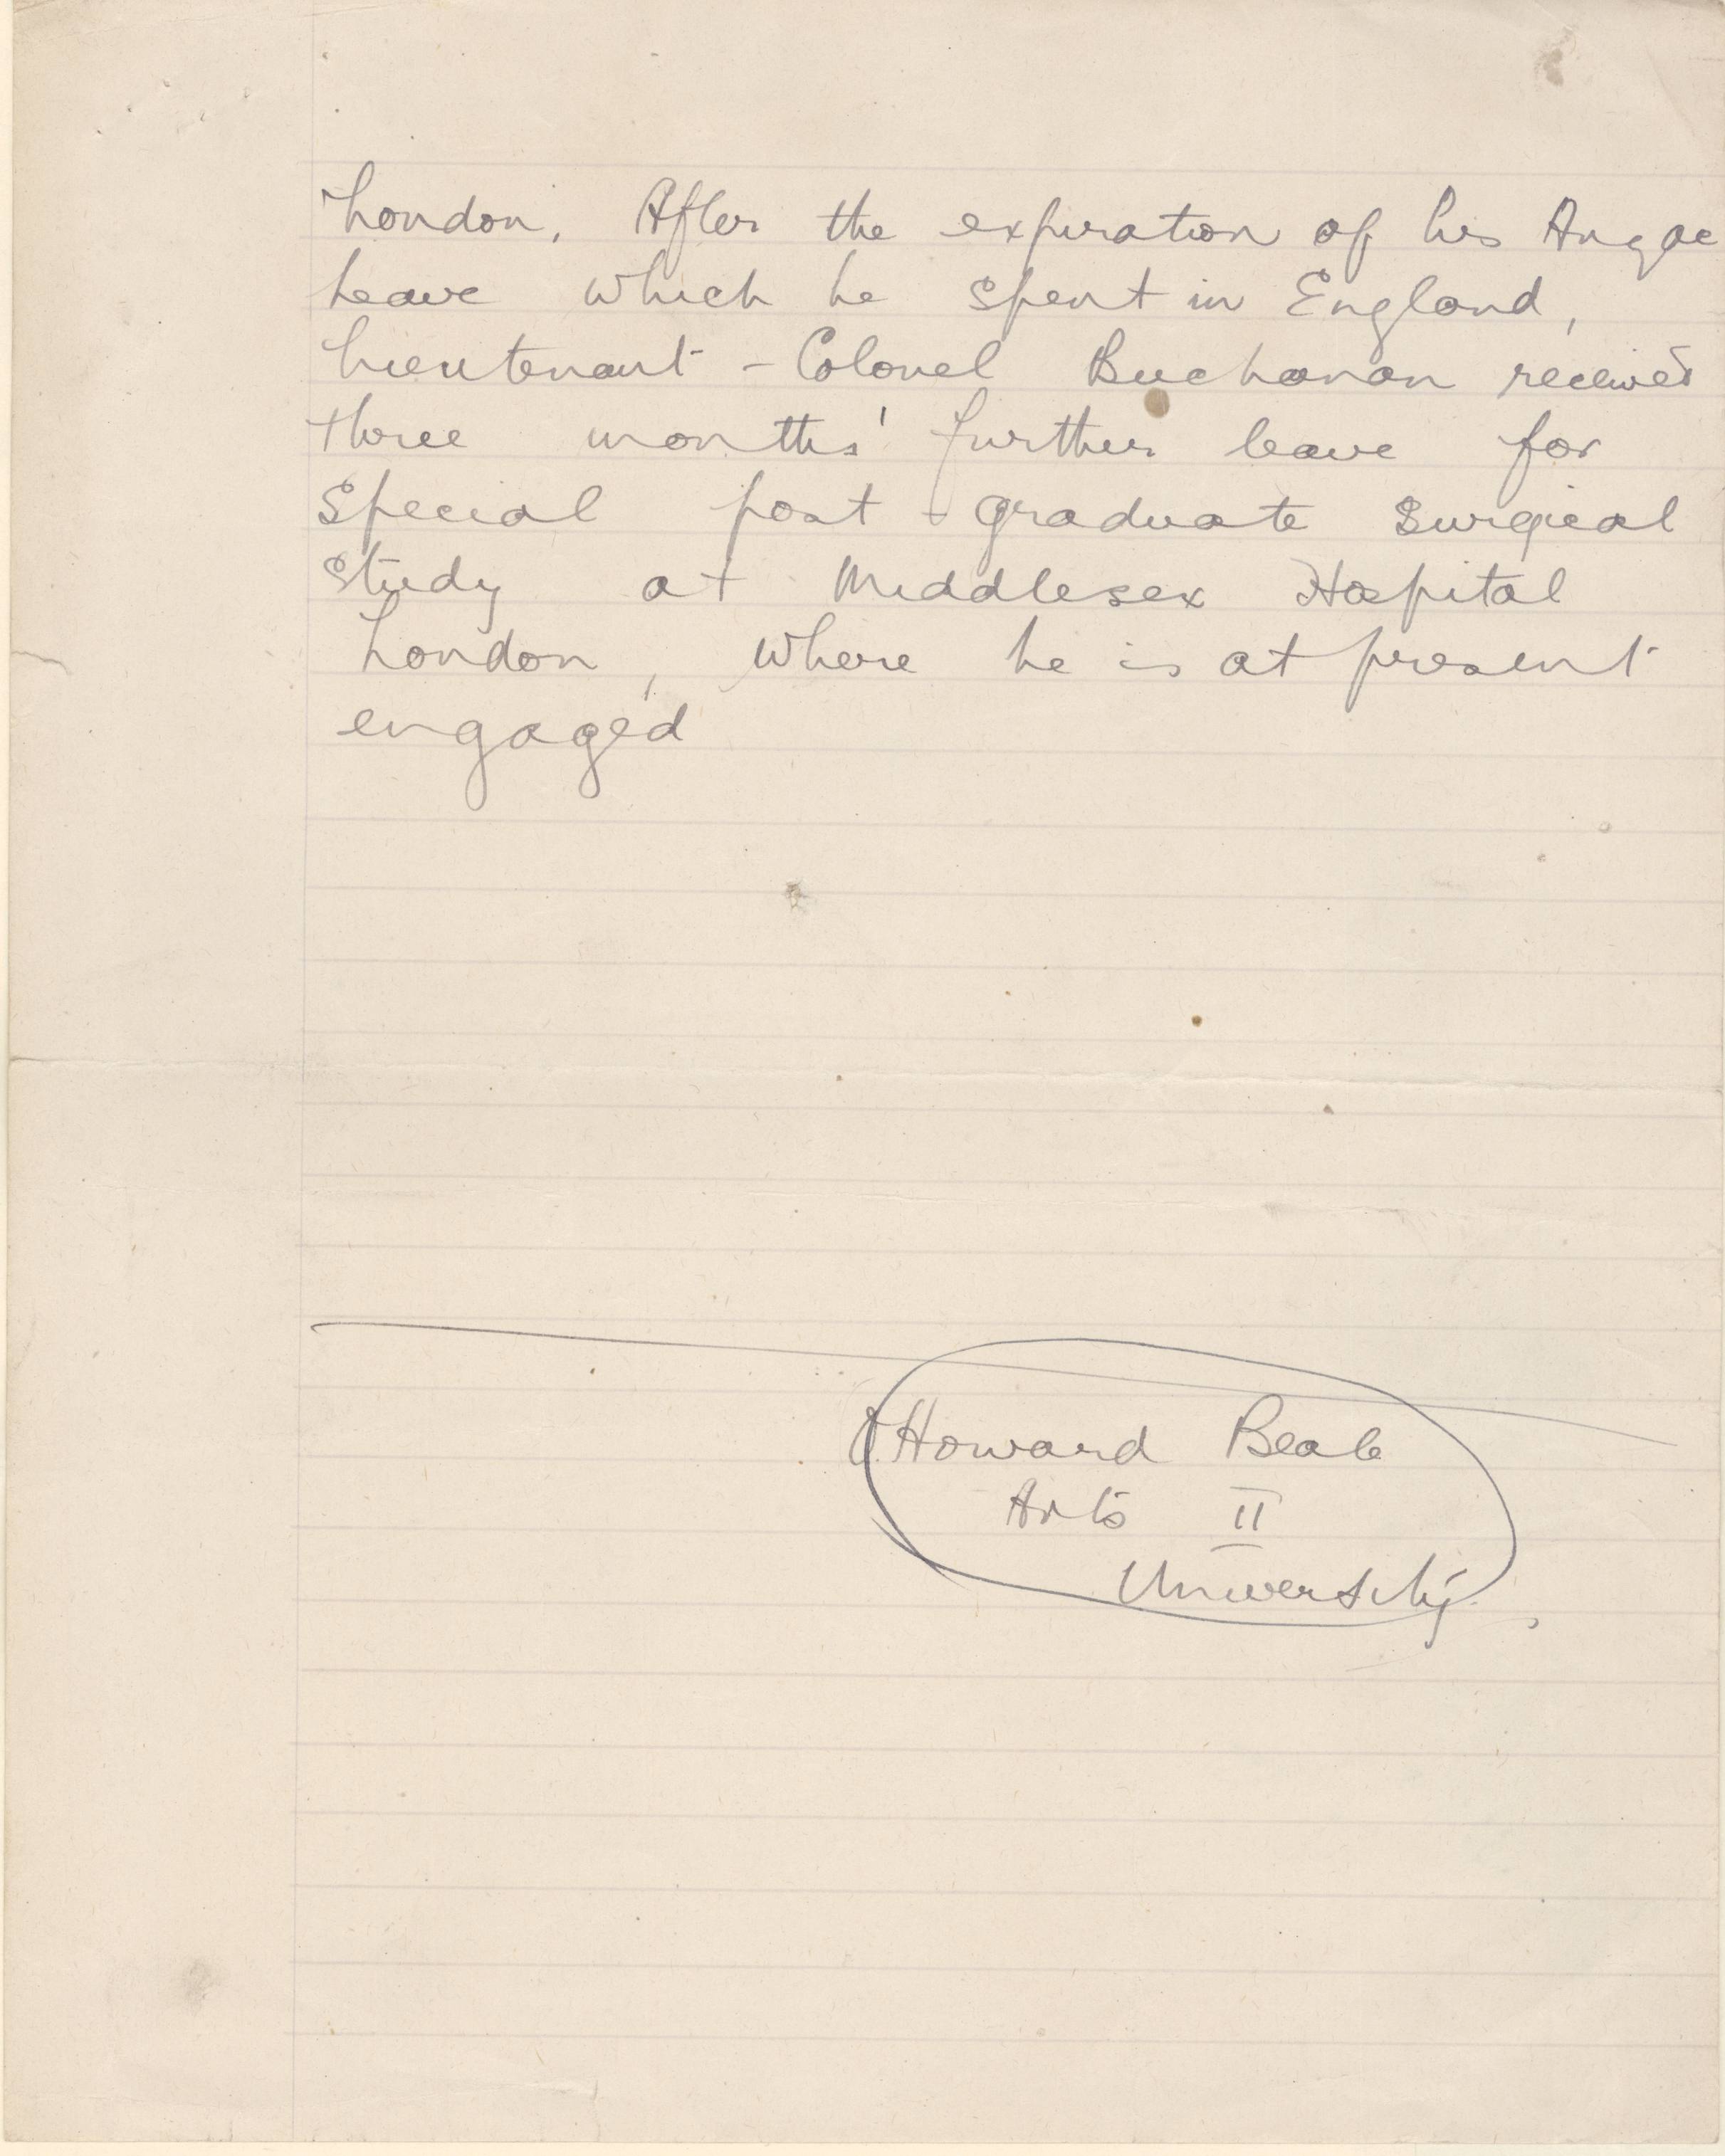 London. After the expiration of his Anzac
Leave which he spent in England,
Lieutenant - Colonel Buchanan received
three months' further leave for
Special post - graduate Surgical
Study at Middlesex Hospital
London, where he is at present
engaged
Howard Beale
Arts II
University.